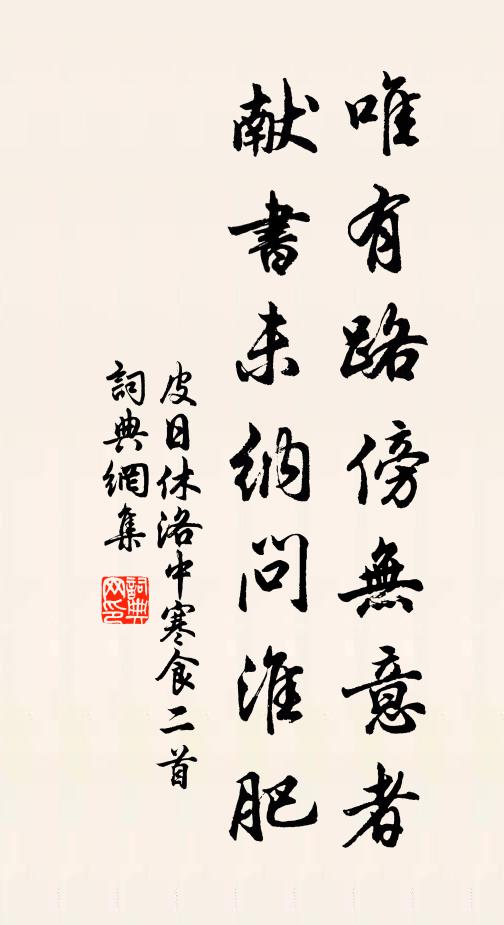 唯有路傍無意者
献書未納問淮肥
皮日休洛中寒食二首
詞典網集
詞典網印